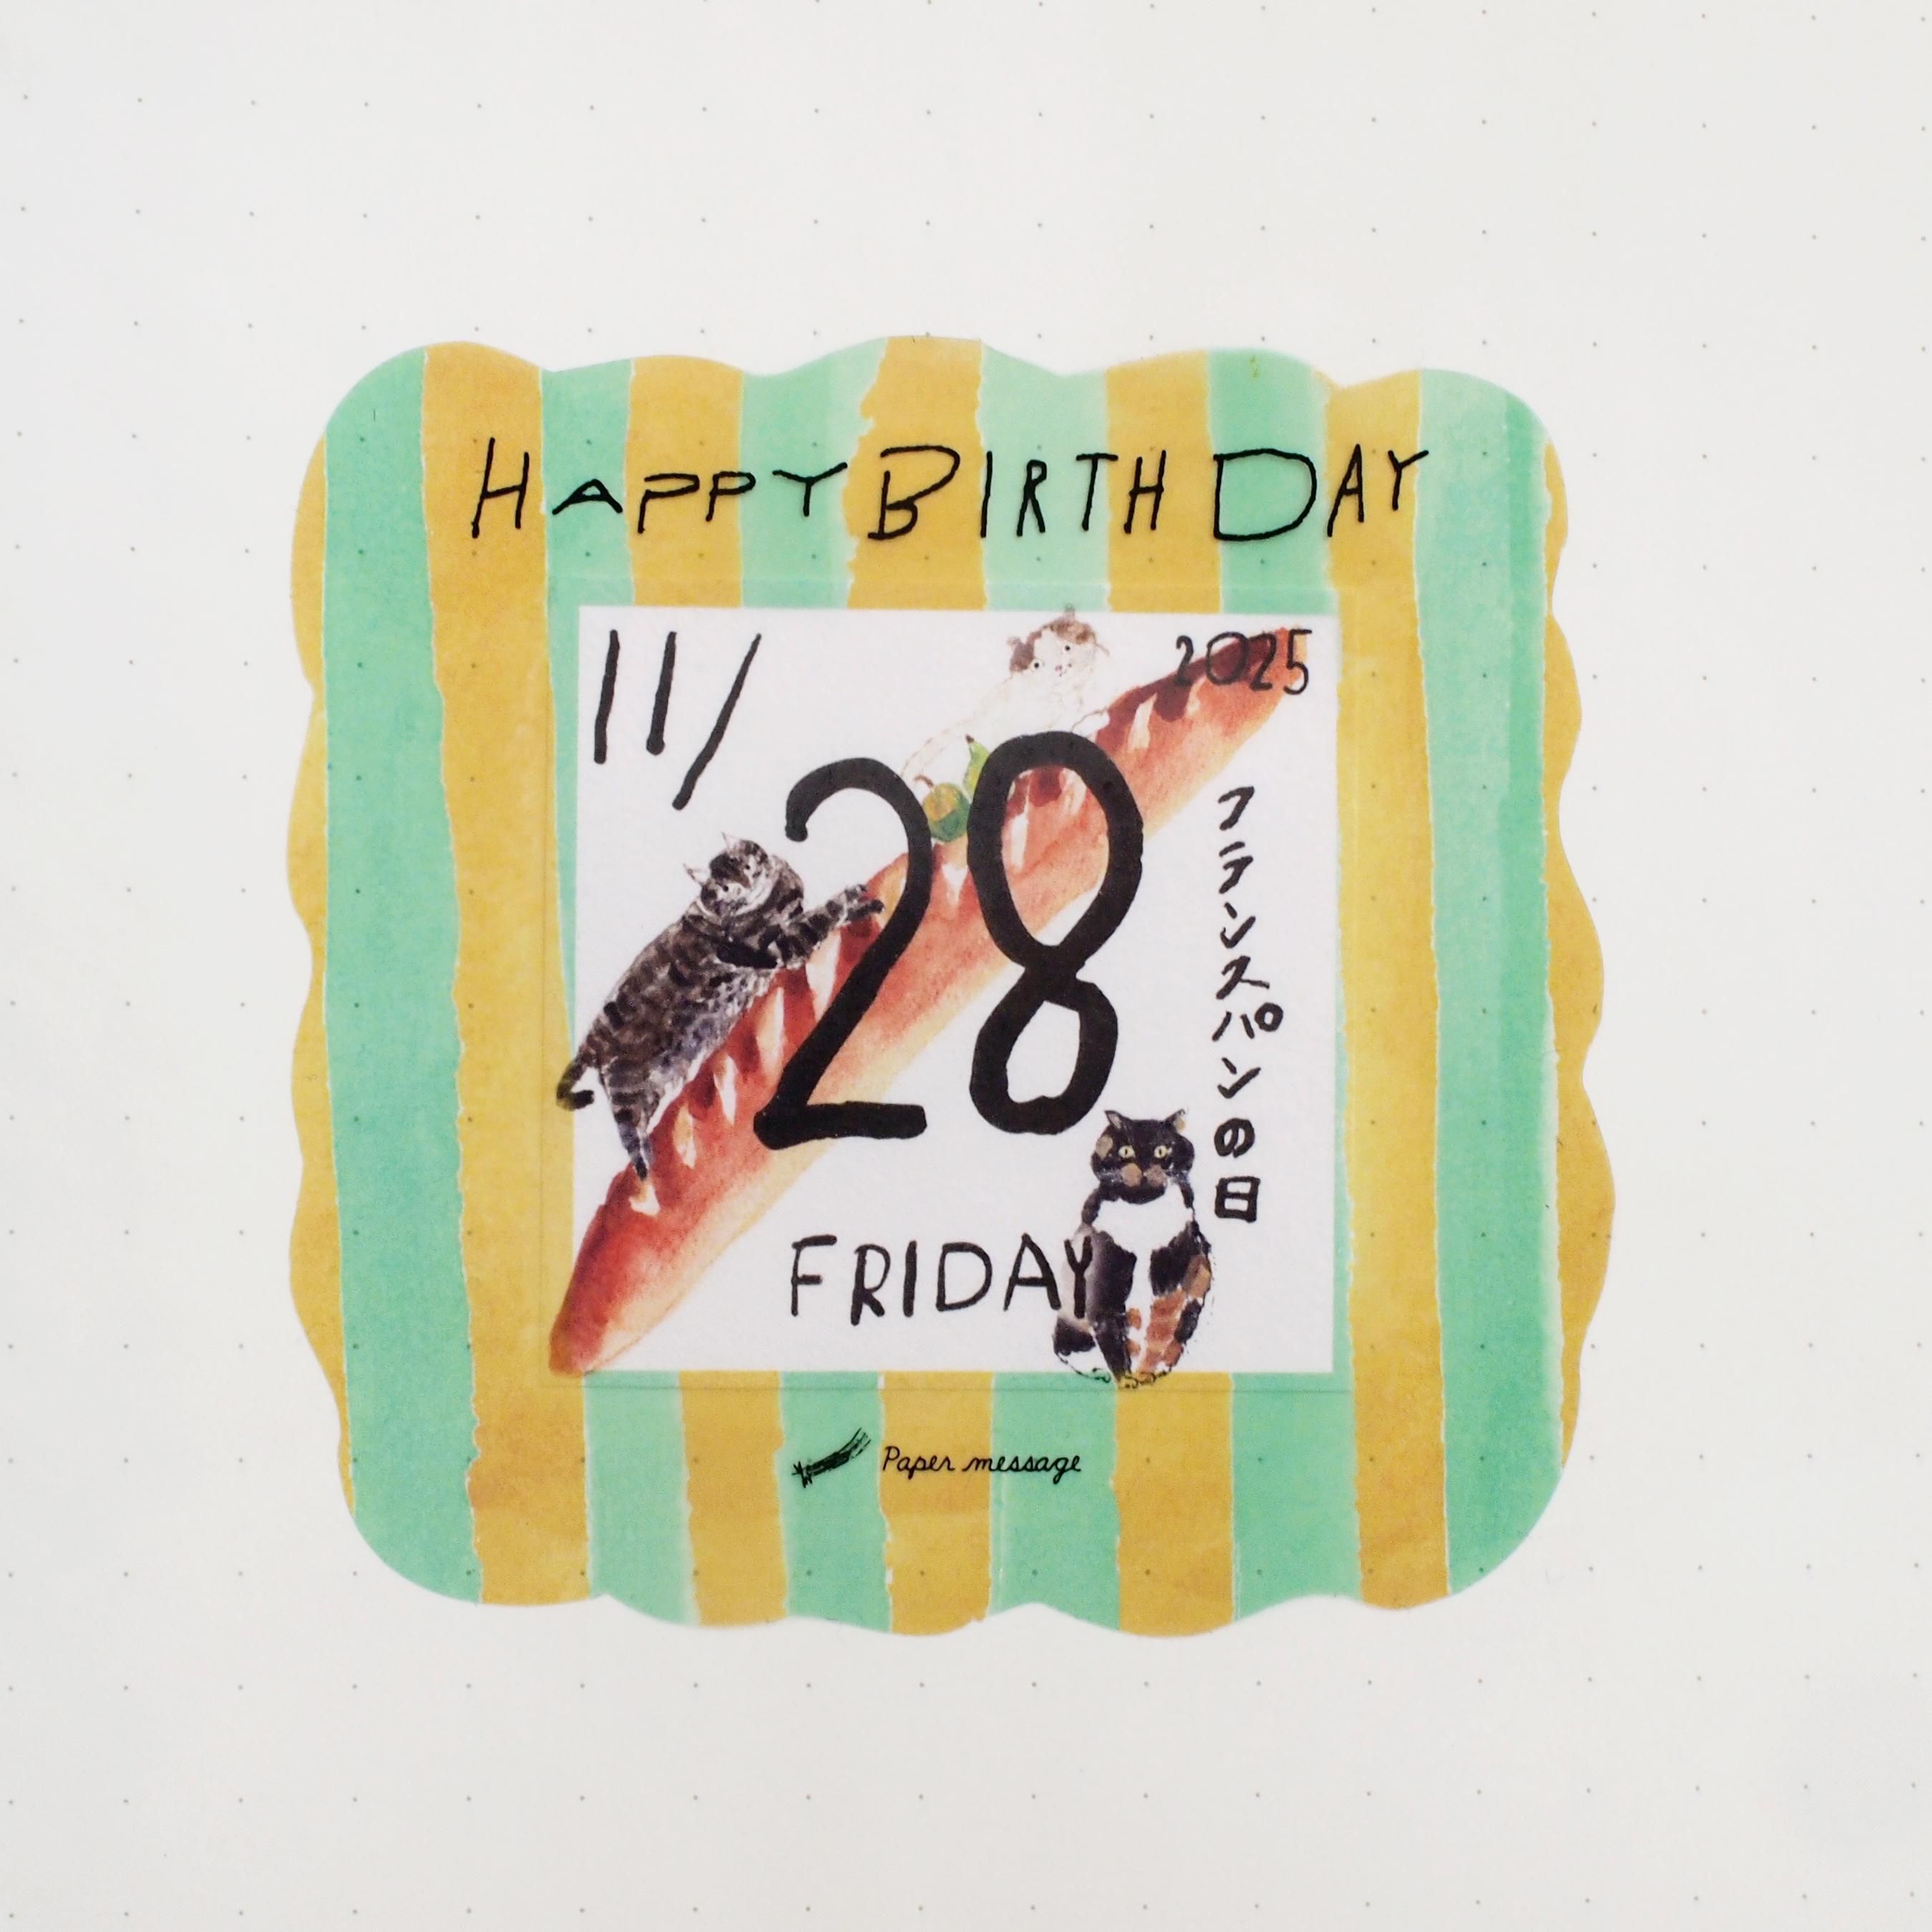 HAPPY BIRTHDAY
11/
2025
28
フランスパンの日
FRIDAY
Paper message